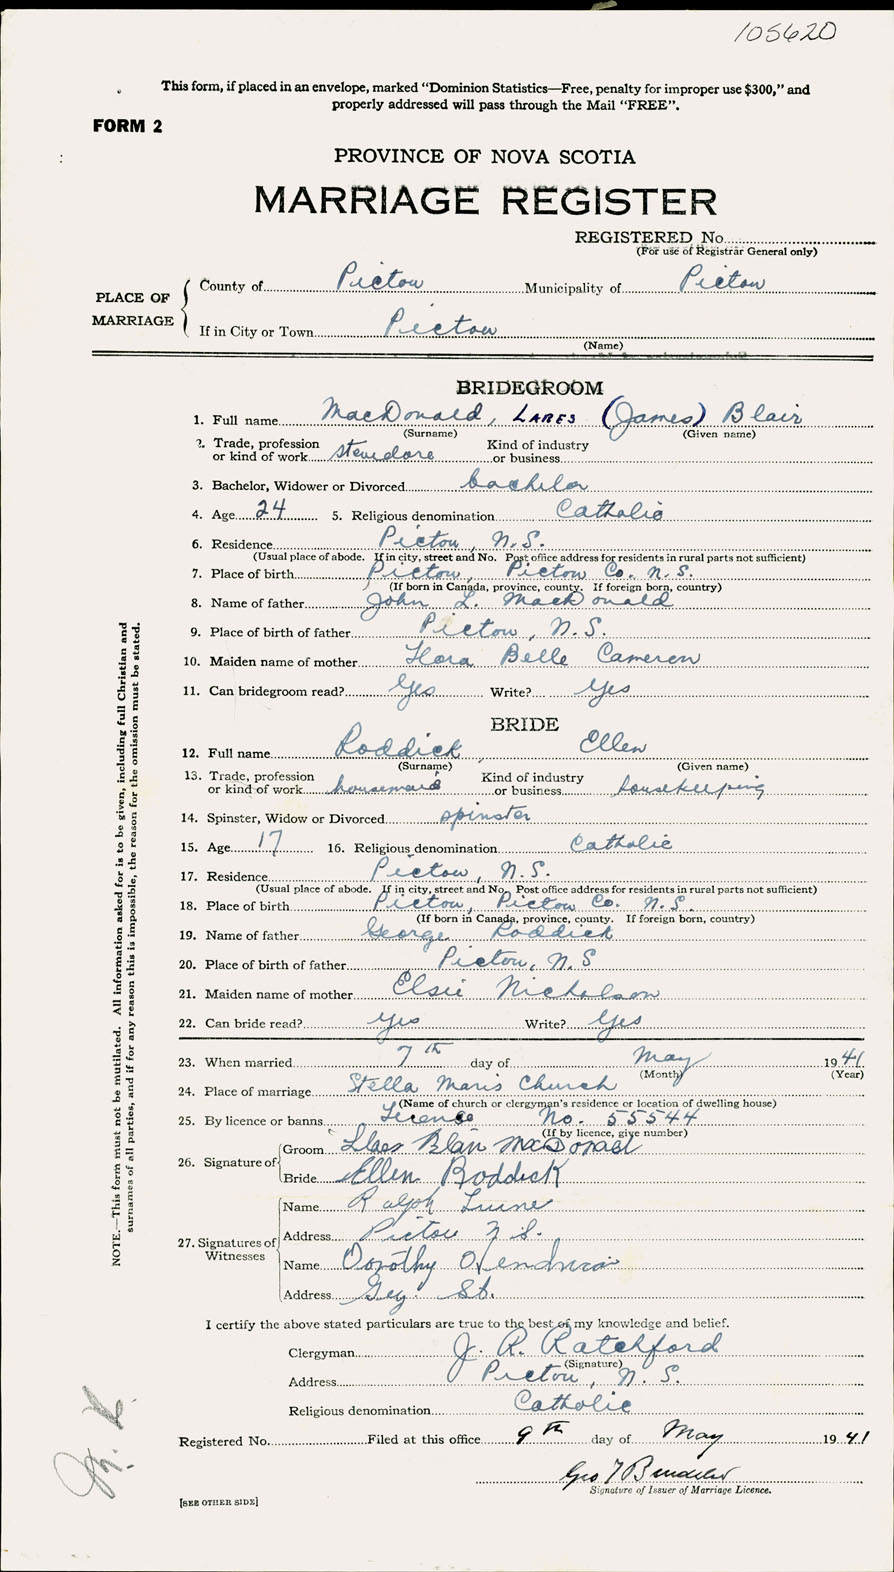 105620
This form, if placed in an envelope, marked “Dominion Statistics—Free, penalty for improper use $300,” and
properly addressed will pass through the Mail “FREE”.
FORM 2
PROVINCE OF NOVA SCOTIA
MARRIAGE REGISTER
REGISTERED No.
(For use of Registrar General only)
PLACE OF MARRIAGE
County of Pictou Municipality of Pictou
If in City or Town Pictou
(Name)
BRIDEGROOM
1. Full name MacDonald, LARES (James) Blair
(Surname) (Given name)
2. Trade, profession or kind of work stevedore Kind of industry or business
3. Bachelor, Widower or Divorced bachelor
4. Age 24 5. Religious denomination Catholic
6. Residence Pictou, N.S.
(Usual place of abode. If in city, street and No. Post office address for residents in rural parts not sufficient)
7. Place of birth Pictou, Pictou Co. N.S.
(If born in Canada, province, county. If foreign born, country)
8. Name of father John L. MacDonald
9. Place of birth of father Pictou, N.S.
10. Maiden name of mother Flora Belle Cameron
11. Can bridegroom read? Yes Write? Yes
BRIDE
12. Full name Roddick, Ellen
(Surname) (Given name)
13. Trade, profession or kind of work housemaid Kind of industry or business housekeeping
14. Spinster, Widow or Divorced spinster
15. Age 17 16. Religious denomination Catholic
17. Residence Pictou, N.S.
(Usual place of abode. If in city, street and No. Post office address for residents in rural parts not sufficient)
18. Place of birth Pictou, Pictou Co. N.S.
(If born in Canada, province, county. If foreign born, country)
19. Name of father George Roddick
20. Place of birth of father Pictou, N.S
21. Maiden name of mother Elsie Nicholson
22. Can bride read? yes Write? Yes
23. When married 7th day of May 1941
(Month) (Year)
24. Place of marriage Stella Maris Church
(Name of church or clergyman's residence or location of dwelling house)
25. By licence or banns License No. 55544
(If by licence, give number)
26. Signature of
Groom Blair McDonald
Bride Ellen Roddick
27. Signatures of Witnesses
Name Ralph
Address Pictou N.S.
Name Dorothy
Address St.
I certify the above stated particulars are true to the best of my knowledge and belief.
Clergyman J. R. Ratchford
(Signature)
Address Pictou, N. S.
Religious denomination Catholic
Registered No. Filed at this office 9th day of May 1941
Geo
Signature of Issuer of Marriage Licence.
[SEE OTHER SIDE]
NOTE.—This form must not be mutilated. All information asked for is to be given, including full Christian and
surnames of all parties, and if for any reason this is impossible, the reason for the omission must be stated.